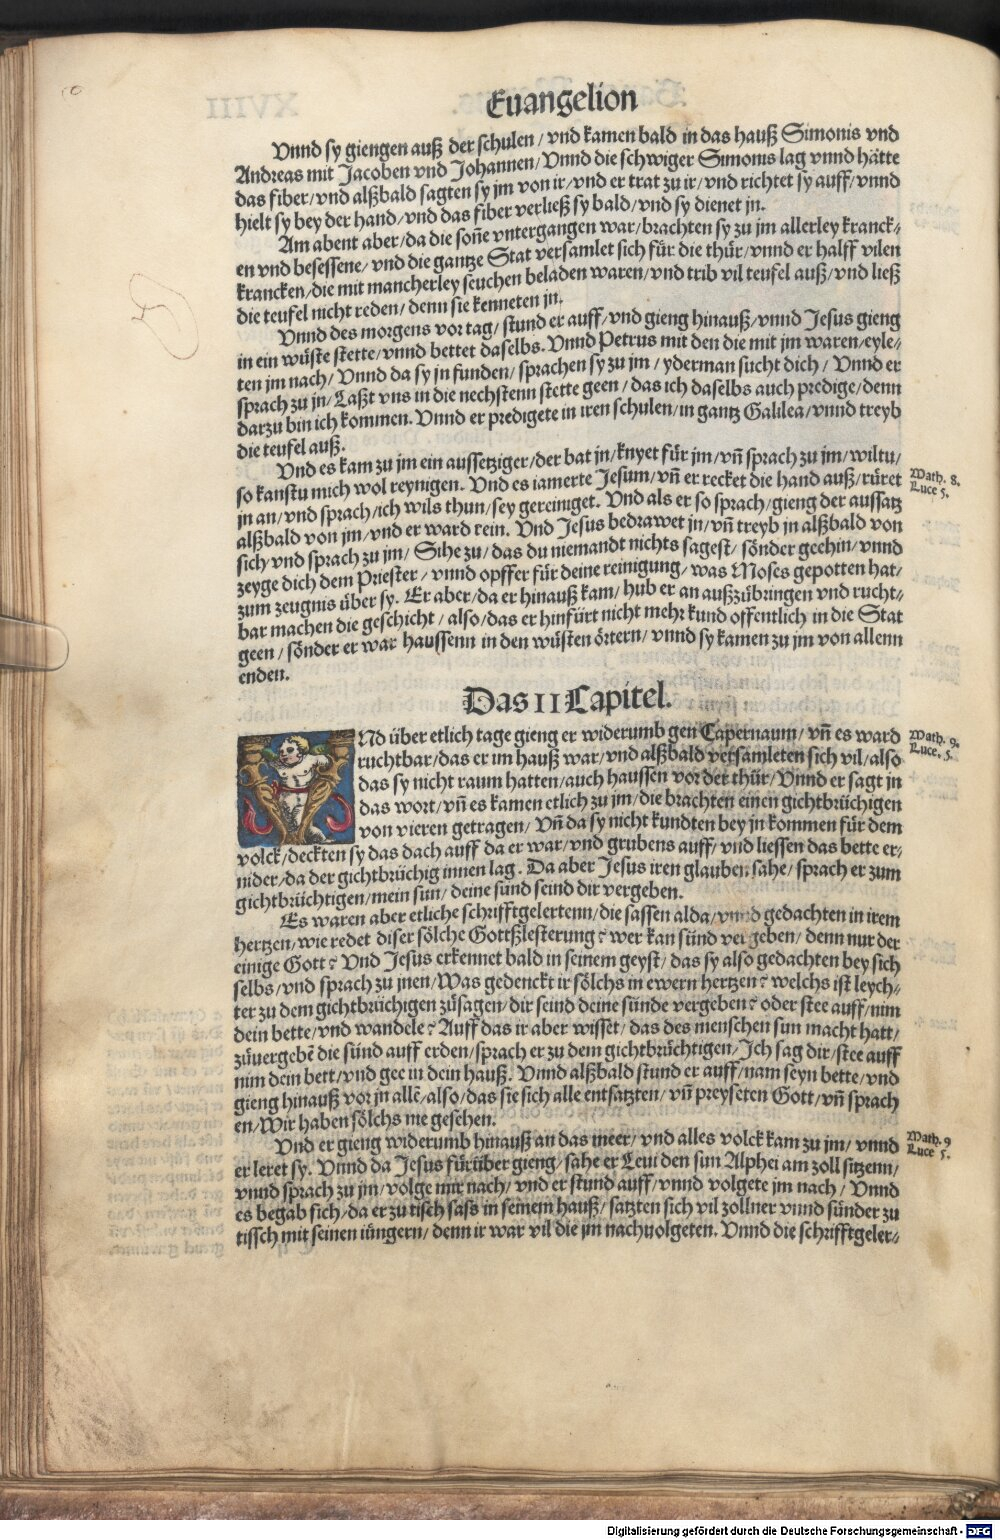 Euangelion
Vnnd sy giengen auß der schulen / vnd kamen bald in das hauß Simonis vnd
Andreas mit Jacoben vnd Johannen / Vnnd die schwiger Simonis lag vnnd hätte
das fiber / vnd alßbald sagten sy jm von ir / vnd er trat zu ir / vnd richtet sy auff / vnnd
hielt sy bey der hand / vnd das fiber verließ sy bald / vnd sy dienet jn.
Am abent aber / da die soñe vntergangen war / brachten sy zu jm allerley kranck⸗
en vnd besessene / vnd die gantze Stat versamlet sich für die thür / vnnd er halff vilen
krancken / die mit mancherley seuchen beladen waren / vnd trib vil teufel auß / vnd ließ
die teufel nicht reden / denn sie kenneten jn.
Vnnd des morgens vor tag / stund er auff / vnd gieng hinauß / vnnd Jesus gieng
in ein wüste stette / vnnd bettet daselbs. Vnnd Petrus mit den die mit jm waren / eyle⸗
ten jm nach / Vnnd da sy jn funden / sprachen sy zu jm / yderman sücht dich / Vnnd er
sprach zu jn / Laßt vns in die nechstenn stette geen / das ich daselbs auch predige / denn
darzu bin ich kommen. Vnnd er predigete in iren schulen / in gantz Galilea / vnnd treyb
die teufel auß.
Vnd es kam zu jm ein aussetziger / der bat jn / knyet für jm / vñ sprach zu jm / wiltu /
so kanstu mich wol reynigen. Vnd es iamerte Jesum / vñ er recket die hand auß / rüret
jn an / vnd sprach / ich wils thun / sey gereiniget. Vnd als er so sprach / gieng der aussatz
alßbald von jm / vnd er ward rein. Vnd Jesus bedrawet jn / vñ treyb jn alßbald von
sich vnd sprach zu jm / Sihe zu / das du niemandt nichts sagest / sönder geehin / vnnd
zeyge dich dem Priester / vnnd opffer für deine reinigung / was Moses gepotten hat /
zum zeugnis über sy. Er aber / da er hinauß kam / hub er an außzübringen vnd rucht⸗
bar machen die geschicht / also / das er hinfürt nicht mehr kund offentlich in die Stat
geen / sönder er war haussenn in den wüsten örtern / vnnd sy kamen zu jm von allenn
enden.
Math. 8.
Luce 5.
Das II Capitel.
VNd über etlich tage gieng er widerumb gen Capernaum / vñ es ward
ruchtbar / das er im hauß war / vnd alßbald versamleten sich vil / also
das sy nicht raum hatten / auch haussen vor der thür / Vnnd er sagt jn
das wort / vñ es kamen etlich zu jm / die brachten einen gichtbrüchigen
von vieren getragen / Vñ da sy nicht kundten bey jn kommen für dem
volck / deckten sy das dach auff da er war / vnd grubens auff / vnd liessen das bette er⸗
nider / da der gichtbrüchig innen lag. Da aber Jesus iren glauben sahe / sprach er zum
gichtbrüchtigen / mein sun / deine sünd seind dir vergeben.
Math. 9.
Luce. 5.
Es waren aber etliche schrifftgelertenn / die sassen alda / vnnd gedachten in irem
hertzen / wie redet diser sölche Gottßlesterung? wer kan sünd vergeben / denn nur der
einige Gott? Vnd Jesus erkennet bald in seinem geyst / das sy also gedachten bey sich
selbs / vnd sprach zu jnen / Was gedenckt ir sölchs in ewern hertzen? welchs ist leych⸗
ter zu dem gichtbrüchigen züsagen / dir seind deine sünde vergeben? oder stee auff / nim
dein bette / vnd wandele? Auff das ir aber wisset / das des menschen sun macht hatt /
züuergebẽ die sünd auff erden / sprach er zu dem gichtbrüchtigen / Ich sag dir / stee auff
nim dein bett / vnd gee in dein hauß. Vnnd alßbald stund er auff / nam seyn bette / vnd
gieng hinauß vor jn allẽ / also / das sie sich alle entsatzten / vñ preyseten Gott / vñ sprach
en / Wir haben sölchs nie gesehen.
Vnd er gieng widerumb hinauß an das meer / vnd alles volck kam zu jm / vnnd
er leret sy. Vnnd da Jesus fürüber gieng / sahe er Leui den sun Alphei am zoll sitzenn /
vnnd sprach zu jm / volge mir nach / vnd er stund auff / vnnd volgete jm nach / Vnnd
es begab sich / da er zu tisch sass in seinem hauß / satzten sich vil zollner vnnd sünder zu
tissch mit seinen iüngern / denn ir war vil die jm nachuolgeten. Vnnd die schrifftgeler⸗
Math. 9
Luce 5.
Digitalisierung gefördert durch die Deutsche Forschungsgemeinschaft - DFG